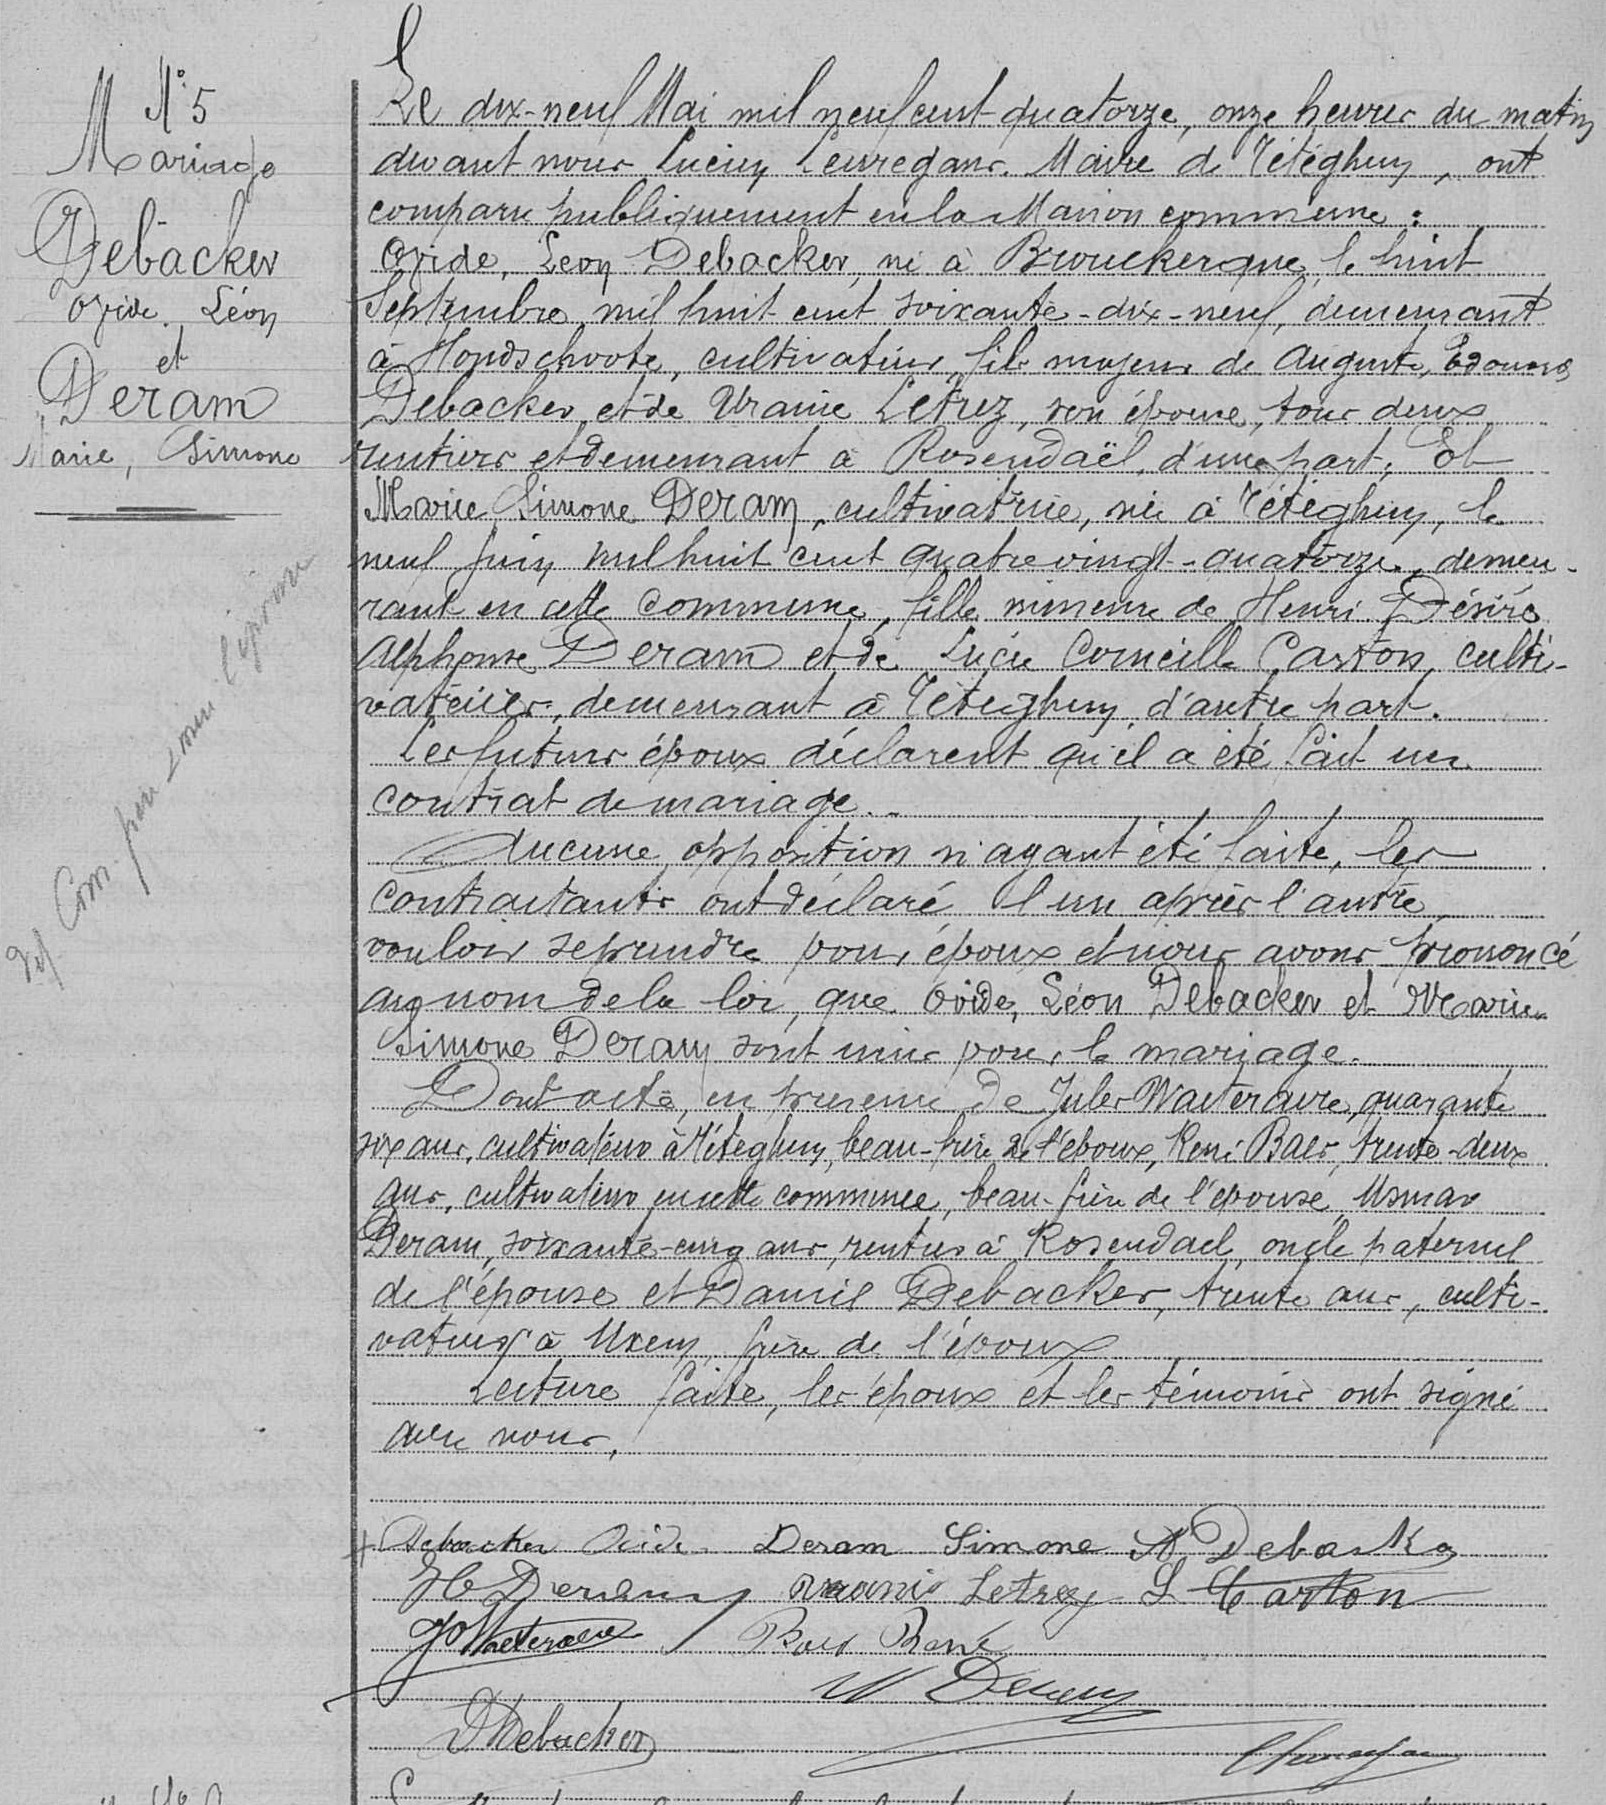 N° 5
Mariage
Debacker
Ovide, Léon
et
Deram
Marie, Simone
Le dix-neuf Mai mil neuf cent quatorze, onze heures du matin
devant nous Lucien Leuregans, Maire de Tétéghem, ont
comparu publiquement en la Maison commune :
Ovide, Léon Debacker, né à Brouckerque, le huit
Septembre mil huit cent soixante-dix-neuf, demeurant
à Hondschoote, cultivateur, fils majeur de Auguste, Edouard
Debacker et de Uranie Letrez, son épouse, tous deux
rentiers et demeurant à Rosendaël, d'une part, Et
Marie, Simone Deram, cultivatrice, née à Tétéghem, le
neuf Juin mil huit cent quatre vingt-quatorze, demeu-
rant en cette commune, fille mineure de Henri Désiré
Alphonse Deram et de Lucie Corneille Carton, culti-
vateurs, demeurant à Tétéghem, d'autre part.
Les futurs époux déclarent qu'il a été fait un
contrat de mariage.
Aucune opposition n'ayant été faite, les
contractants ont déclaré l'un après l'autre
vouloir se prendre pour époux et nous avons prononcé
au nom de la loi, que Ovide, Léon Debacker et Marie
Simone Deram sont unis par le mariage.
Dont acte, en présence de Jules Waeteraere, quarante
six ans, cultivateur à Tétéghem, beau-frère de l'époux, René Baes, trente-deux
ans, cultivateur en cette commune, beau-frère de l'épouse, Usmar
Deram, soixante-cinq ans, rentier à Rosendael, oncle paternel
de l'épouse et Daniel Debacker, trente ans, culti-
vateur à Uxem, frère de l'époux
Lecture faite, les époux et les témoins ont signé
avec nous.
Debacker Ovide Deram Simone A Debacker
H Deram Uranie Letrez L Carton
J Waeteraere Baes René
U Deram
D Debacker